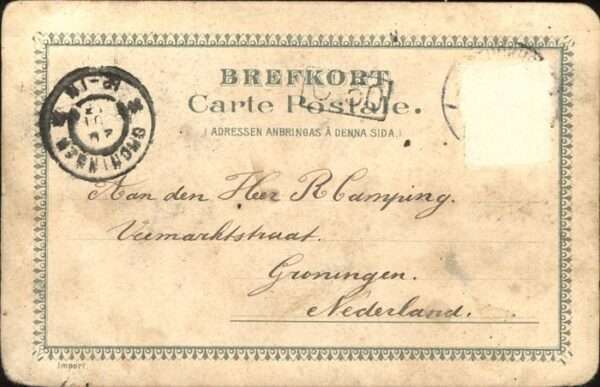 BREFKORT
Carte Postale.
(ADRESSEN ANBRINGAS Å DENNA SIDA.)
GRONINGEN
Aan den Heer R Camping.
Veemarktstraat.
Groningen.
Nederland.
Import